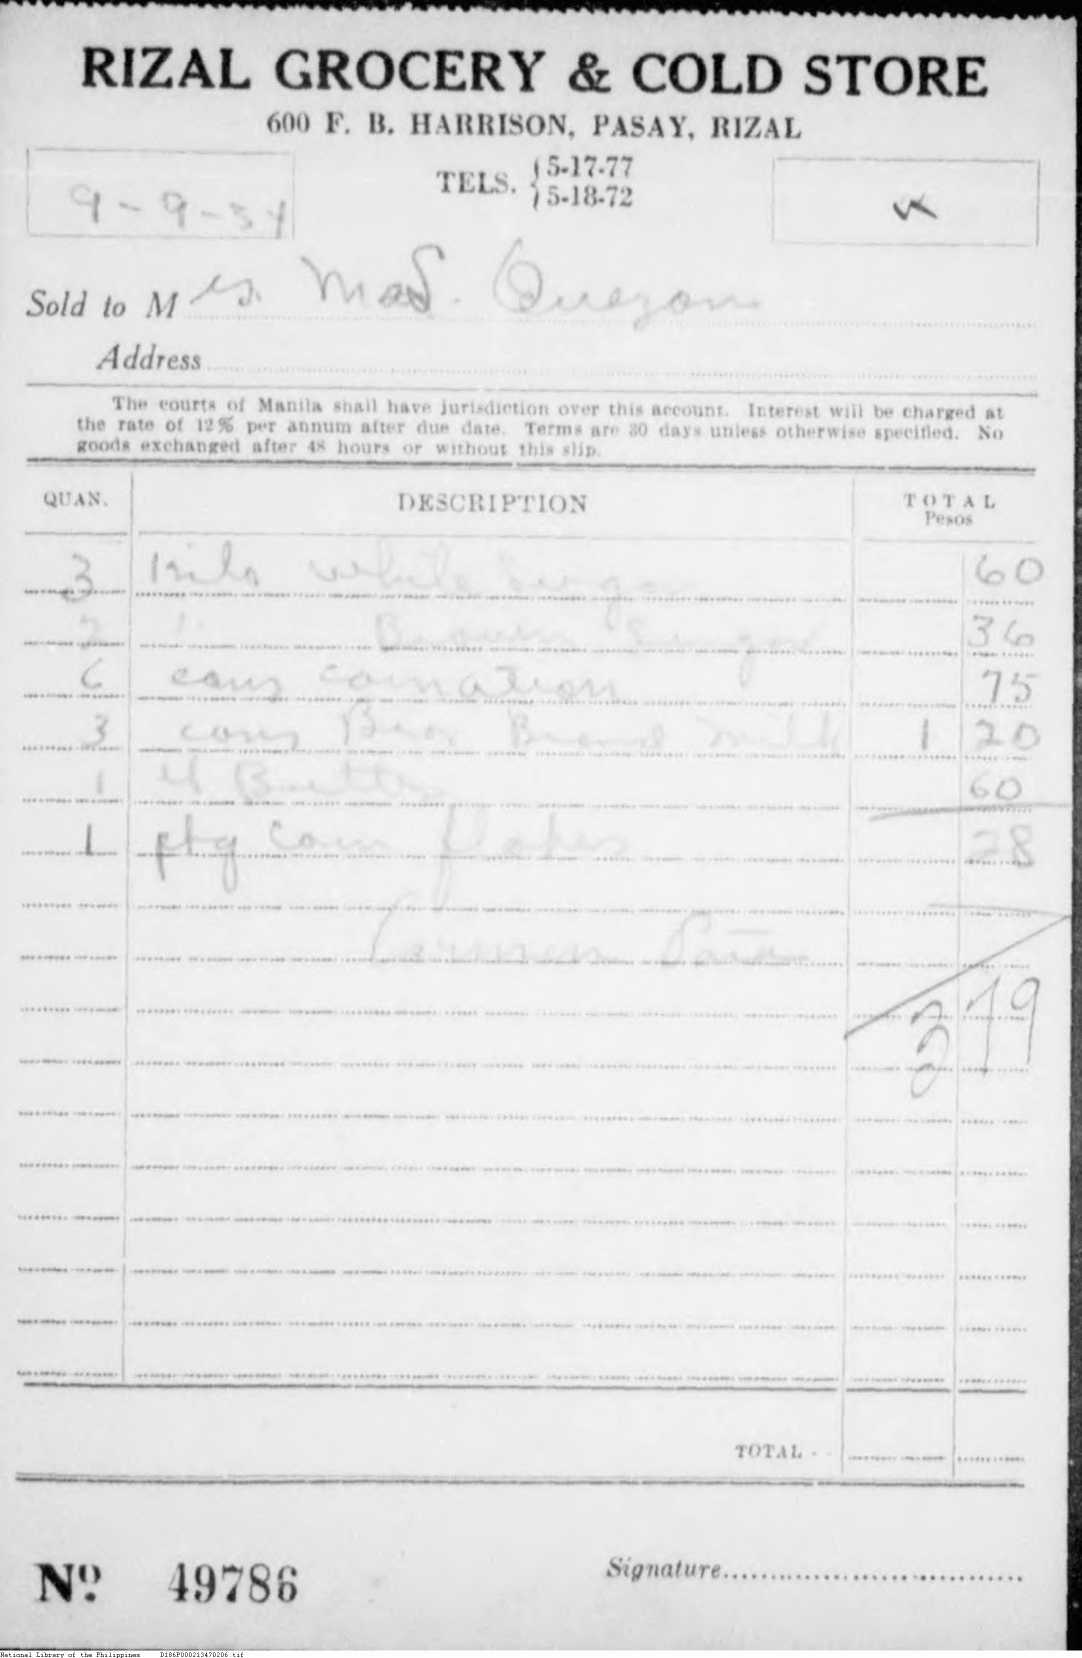 RIZAL GROCERY & COLD STORE
600 F. B. HARRISON, PASAY, RIZAL
TELS. 5-17-77
5-18-72
9-9-34
Sold to Mrs. Quezon
Address
The courts of Manila shall have jurisdiction over this account. Interest will be charged at
the rate of 12% per annum after due date. Terms are 30 days unless otherwise specified. No
goods exchanged after 48 hours or without this slip.
QUAN. DESCRIPTION TOTAL
Pesos
3 kilo white Sugar 60
2 " Brown Sugar 36
6 cans carnation 75
3 cans Bear Brand milk 1 20
1 Butter 60
1 pkg corn flakes 28
Carmen
3 79
TOTAL - -
Nº 49786
Signature
National Library of the Philippines D186P000213470206.tif